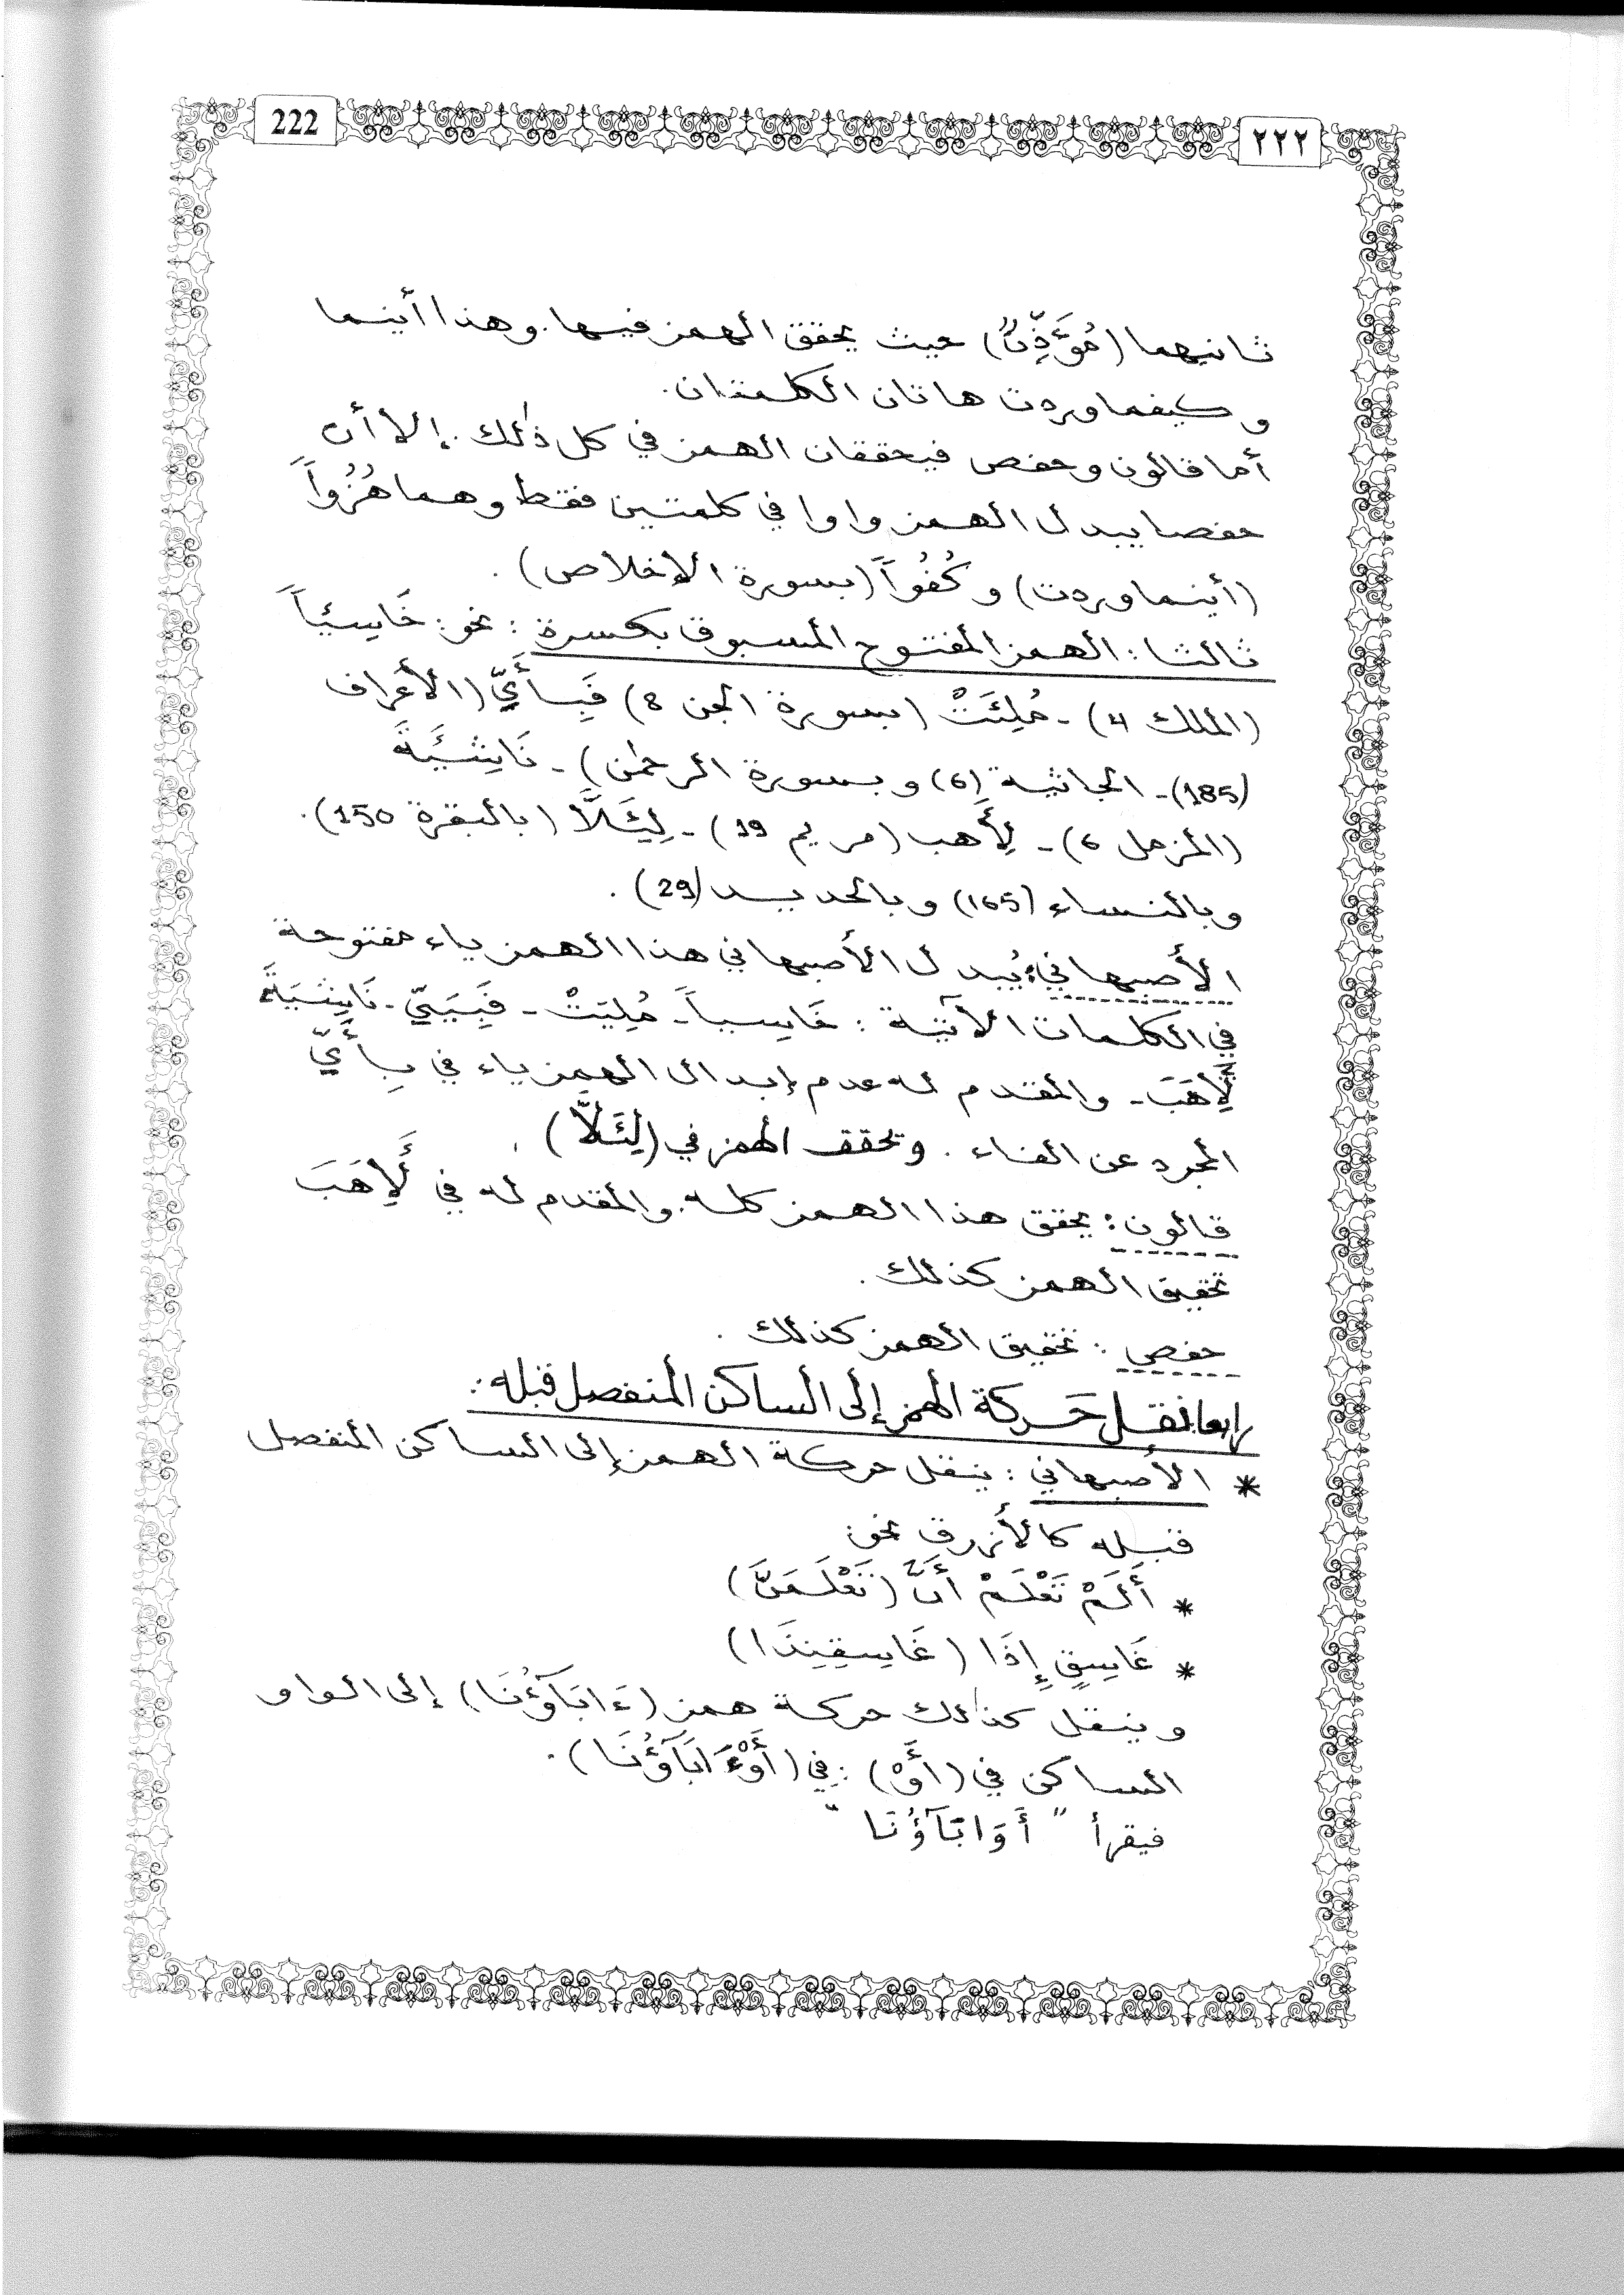 222
٢٢٢
ثانيهما (مُؤَذِّنٌ) حيث يحقق الهمز فيها. وهذا أينما
وكيفما وردت هاتان الكلمتان.
أما قالون وحفص فيحققان الهمز في كل ذلك. إلا أن
حفصا يبدل الهمز واوا في كلمتين فقط وهما هُزُواً
(أينما وردت) و كُفُواً (بسورة الإخلاص).
ثالثا: الهمز المفتوح المسبوق بكسرة: نحو: خَاسِئاً
(الملك 4) - مُلِئَتْ (بسورة الجن 8) فَبِأَيِّ (الأعراف
(185) - الجاثية (6) وبسورة الرحمٰن) - نَاشِئَةَ
(المزمل 6) - لِأَهب (مريم 19) - لِئَلَّا (بالبقرة 150).
وبالنساء (165) وبالحديد (29).
الأصبهاني: يُبدل الأصبهاني هذا الهمز ياء مفتوحة
في الكلمات الآتية: خَاسِياً - مُلِيَتْ - فَبِيَيِّ - نَاشِيَةَ
لِأَهَبَ - والمقدم له عدم إبدال الهمز ياء في بِأَيِّ
المجرد عن الفاء. وتحقق الهمز في (لِئَلَّا).
قالون: يحقق هذا الهمز كله. والمقدم له في لِأَهَبَ
تحقيق الهمز كذلك.
حفص: تحقيق الهمز كذلك.
رابعا: نقل حَركة الهمز إلى الساكن المنفصل قبله:
* الأصبهاني: ينقل حركة الهمز إلى الساكن المنفصل
قبله كالأزرق نحو:
* أَلَمْ تَعْلَمْ أَنَّ (تَعْلَمَنَّ)
* غَاسِقٍ إِذَا (غَاسِقِنِذَا)
وينقل كذلك حركة همز (ءَابَآؤُنَا) إلى الواو
الساكن في (أَوْ): في (أَوْءَابَآؤُنَا).
فيقرأ " أَوَابَآؤُنَا "